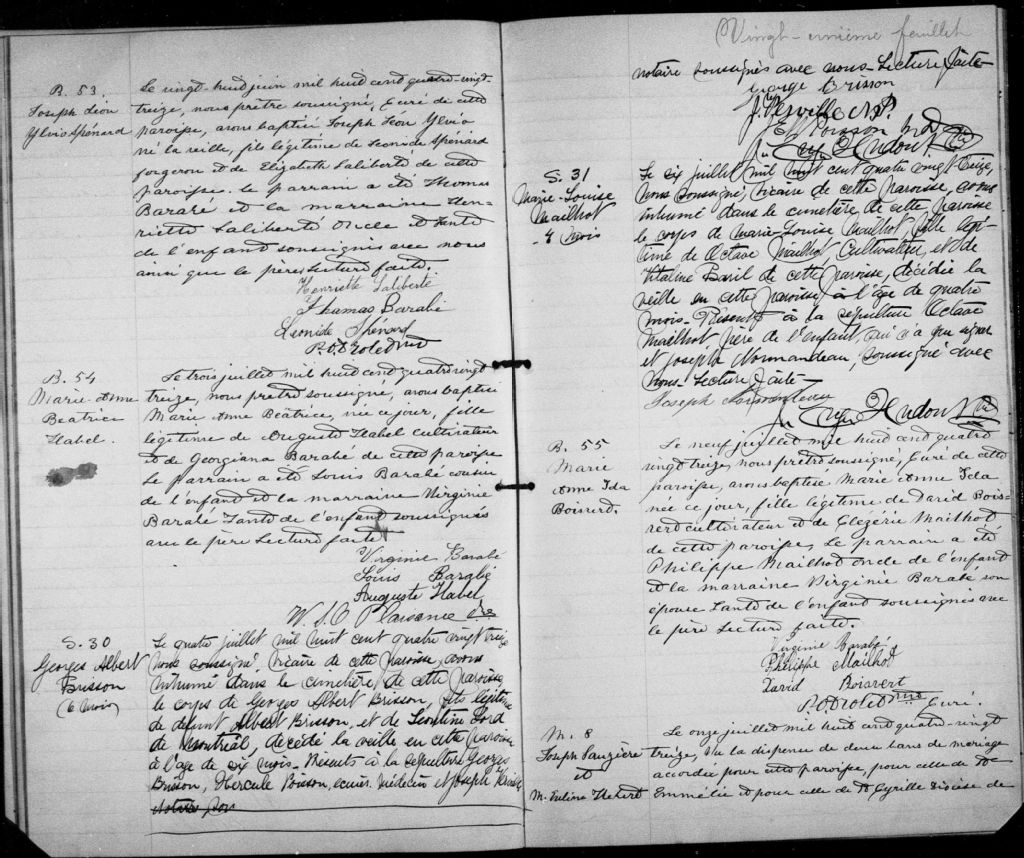 B. 53.
Joseph Léon
Ylvio Spénard
Le vingt-huit juin mil huit cent quatre-vingt
treize, nous prêtre soussigné, Curé de cette
paroisse, avons baptisé Joseph Léon Ylvio
né la veille, fils légitime de Leonide Spénard
forgeron et de Elizabeth Laliberté de cette
paroisse. Le parrain a été Thomas
Barabé et la marraine Hen-
riette Laliberté Oncle et Tante
de l'enfant soussignés avec nous
ainsi que le père, Lecture faite.
Henriette Laliberté
Thomas Barabé
Leonide Spénard
Ptre
B. 54
Marie-Anne
Béatrice
Habel.
Le trois juillet mil huit cent quatre vingt
treize, nous prêtre soussigné, avons baptisé
Marie Anne Béatrice, née ce jour, fille
légitime de Auguste Habel cultivateur
et de Georgiana Barabé de cette paroisse
Le parrain a été Louis Barabé cousin
de l'enfant et la marraine Virginie
Barabé Tante de l'enfant soussignés
avec le père Lecture faite
Virginie Barabé
Louis Barabé
Auguste Habel
W. J. O. Plaisance Ptre
S. 30
Georges Albert
Brisson
(6 mois)
Le quatre juillet mil huit cent quatre vingt treize
Nous soussigné, Vicaire de cette paroisse, avons
inhumé dans le cimetière de cette paroisse
le corps de Georges Albert Brisson, fils légitime
de defunt Albert Brisson, et de Léontine Lord
de Montréal, décédé la veille en cette paroisse
à l'âge de six mois. Présents à la sépulture Georges
Brisson, Hercule Poisson, écuier, médecin et Joseph
Notaire sou
Vingt-unième feuillet
notaire soussignés avec nous - Lecture faite
George Brisson
N.P.
Poisson M.D.
Ptre
S. 31
Marie-Louise
Mailhot
4 mois
Le six juillet mil huit cent quatre vingt treize,
Nous soussigné, Vicaire de cette paroisse, avons
inhumé dans le cimetière de cette paroisse
le corps de Marie-Louise Mailhot, fille légi-
time de Octave Mailhot, Cultivateur, et de
Vitaline Baril de cette paroisse, décédée la
veille en cette paroisse à l'âge de quatre
mois. Présents à la sépulture Octave
Mailhot père de l'enfant, qui n'a pu signer
et Joseph Normandeau, soussigné avec
Nous - Lecture faite
Joseph Normandeau
Ptre
B. 55
Marie
Anne Ida
Boisverd.
Le neuf juillet mil huit cent quatre
vingt treize, nous prêtre soussigné, Curé de cette
paroisse, avons baptisé Marie Anne Ida
née ce jour, fille légitime de David Bois-
verd cultivateur et de Glézérie Mailhot
de cette paroisse, Le parrain a été
Philippe Mailhot oncle de l'enfant
et la marraine Virginie Barabé son
épouse Tante de l'enfant soussignés avec
le père Lecture faite.
Virginie Barabé
Philippe Mailhot
David Boisvert
Ptre Curé.
M. 8
Joseph Lauzière
et
M. Eulina Hebert
Le onze juillet mil huit cent quatre-vingt
treize, Vu la dispense de deux bans de mariage
accordée pour cette paroisse, pour celle de Ste
Emmélie et pour celle de St Cyrille diocèse de